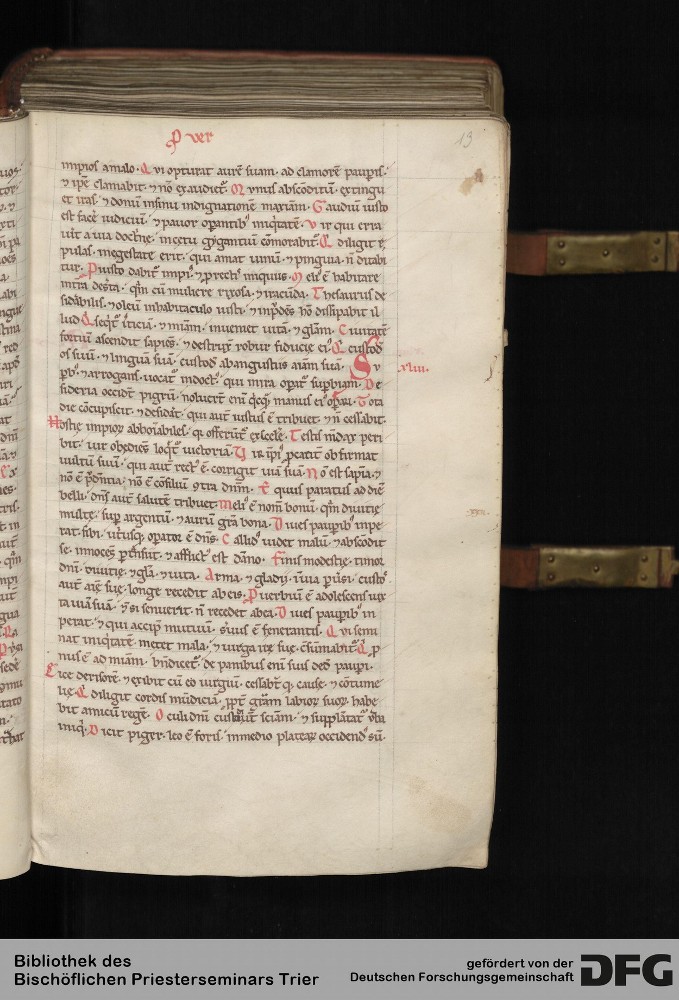 Pver
13
impios a malo. Qui opturat aurē suam. ad clamorē paupis.
⁊ ipē clamabit. ⁊ nō exaudiet᷑. Munus absconditum. extingu
et iras. ⁊ donum insinu indignationē maximā. Gaudium iusto
est facē iudicium. ⁊ pauor operantib᷒ iniq̇tatē. Vir qui erra
uit a uia doctrīe. incetu gygantium cōmorabit᷑. Q diligit e
pulas. inegestate erit. qui amat uinū. ⁊ pinguia. ñ ditabi
tur. P iusto dabit᷑ impi᷒. ⁊ p rectis iniquus. Meli᷒ ē habitare
intra desta. qm̄ cū muliere rixosa. ⁊ iracūda. Thesaurus de
siderabilis. ⁊ oleum inhabitaculo iusti. ⁊ inprudēs hō dissipabit il
lud. Q seq̇t᷑ iusticiā. ⁊ miam. inueniet uitā. ⁊ glam. Ciuitatē
fortium ascendit sapiēs. ⁊ destruxit robur fiducie ei᷒. Q custod
os suū. ⁊ linguam suā. custod abangustiis aīam suā. Su
pb᷒. ⁊ arrogans. uocat᷑ indoct᷒. qui inira opat᷑ supbiam. De
xliii.
sideria occidt̄ pigrū. noluert̄ eni q̇cq̄ manus ei᷒ opari. Tota
die cōcupiscit ⁊ desidat. qui aut̄ iustus ē tribuet. ⁊ ñ cessabit.
Hostie impior abhoīabiles. q offerunt᷑ excelē. Testis mdax peri
bit. uir obediens loq̇t᷑ uictoriā. Vir ipi᷒ pcacit̄ obfirmat
uultum suū. qui aut̄ rect᷒ ē. corrigit uiā suā. Nō est sapīa. ⁊
nō ē prudentia. nō ē cōsilium 9tra dnm̄. Equus paratus ad diē
belli. dn̄s aut̄ salutē tribuet. Meli᷒ ē nom̄ bonū. qm̄ diuitie
multe. sup argentū. ⁊ aurū gra bona. Diues paupib᷒ inpe
rat sibi. utriusq. operator ē dn̄s. Callid᷒ uidet malū. ⁊ abscodit
se. innocēs ptransiit. ⁊ afflict᷒ est dāno. Finis modestie. timor
dnī. diuitie. ⁊ gla. ⁊ uita. Arma. ⁊ gladii. iuia puersi. custo᷒
aut̄ aīe sue. longe recedit ab eis. Puerbium ē adolescens iux
ta uiā suā. ⁊ si senuerit. ñ recedet abea. Diues paupib᷒ in
perat. ⁊ qui accip mutuū. suus ē fenerantis. Qui semi
nat iniq̇tatē. metet mala. ⁊ uirga ire sue cōsūmabit᷑. Q p
nus ē ad miam. bn̄dicet᷑. de panibus enī suis dedit paupi.
Eice derisorē. ⁊ exibit cū eo iurgium. cessabt q. cause. ⁊ cōtume
lie. Q diligit cordis mūdiciā. ppt grām labior suor. habe
bit amicū regē. Oculi dnī custodiūt sciam. ⁊ supplātat᷑ uba
iniq̇. Dicit piger. leo ē foris. inmedio platear occidend᷒ sū.
Bibliothek des
Bischöflichen Priesterseminars Trier
gefördert von der
Deutschen Forschungsgemeinschaft
DFG